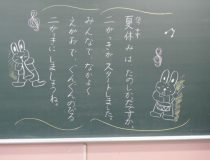 夏休みはたのしかったですか。
二がっきがスタートしました。
みんなで、なかよく
えがおで、ぐんぐんのびる
二がっきにしましょうね。